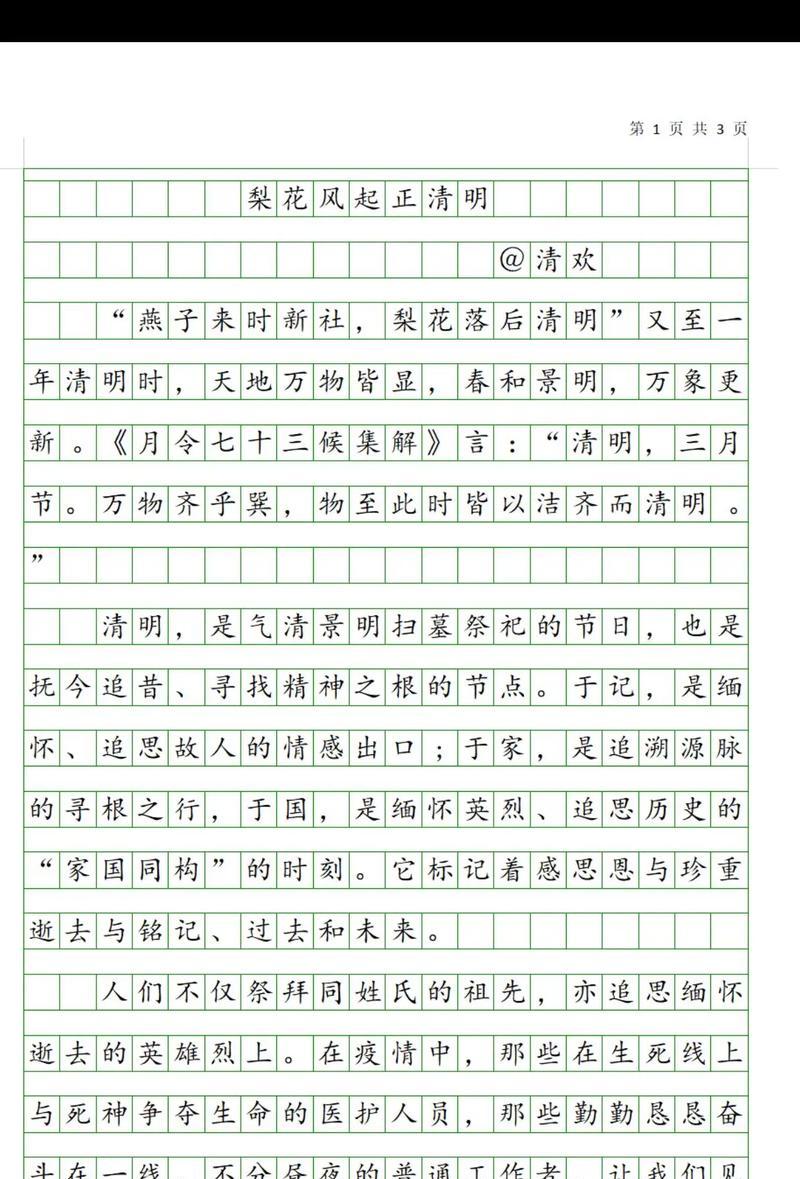 第 1 页 共 3 页
梨花风起正清明
@清欢
“燕子来时新社，梨花落后清明”又至一
年清明时，天地万物皆显，春和景明，万象更
新。《月令七十三候集解》言：“清明，三月
节。万物齐乎巽，物至此时皆以洁齐而清明。
”
清明，是气清景明扫墓祭祀的节日，也是
抚今追昔、寻找精神之根的节点。于记，是缅
怀、追思故人的情感出口；于家，是追溯源脉
的寻根之行，于国，是缅怀英烈、追思历史的
“家国同构”的时刻。它标记着感思恩与珍重
逝去与铭记、过去和未来。
人们不仅祭拜同姓氏的祖先，亦追思缅怀
逝去的英雄烈上。在疫情中，那些在生死线上
与死神争夺生命的医护人员，那些勤勤恳恳奋
斗在一线、不分昼夜的普通工作者，让我们见